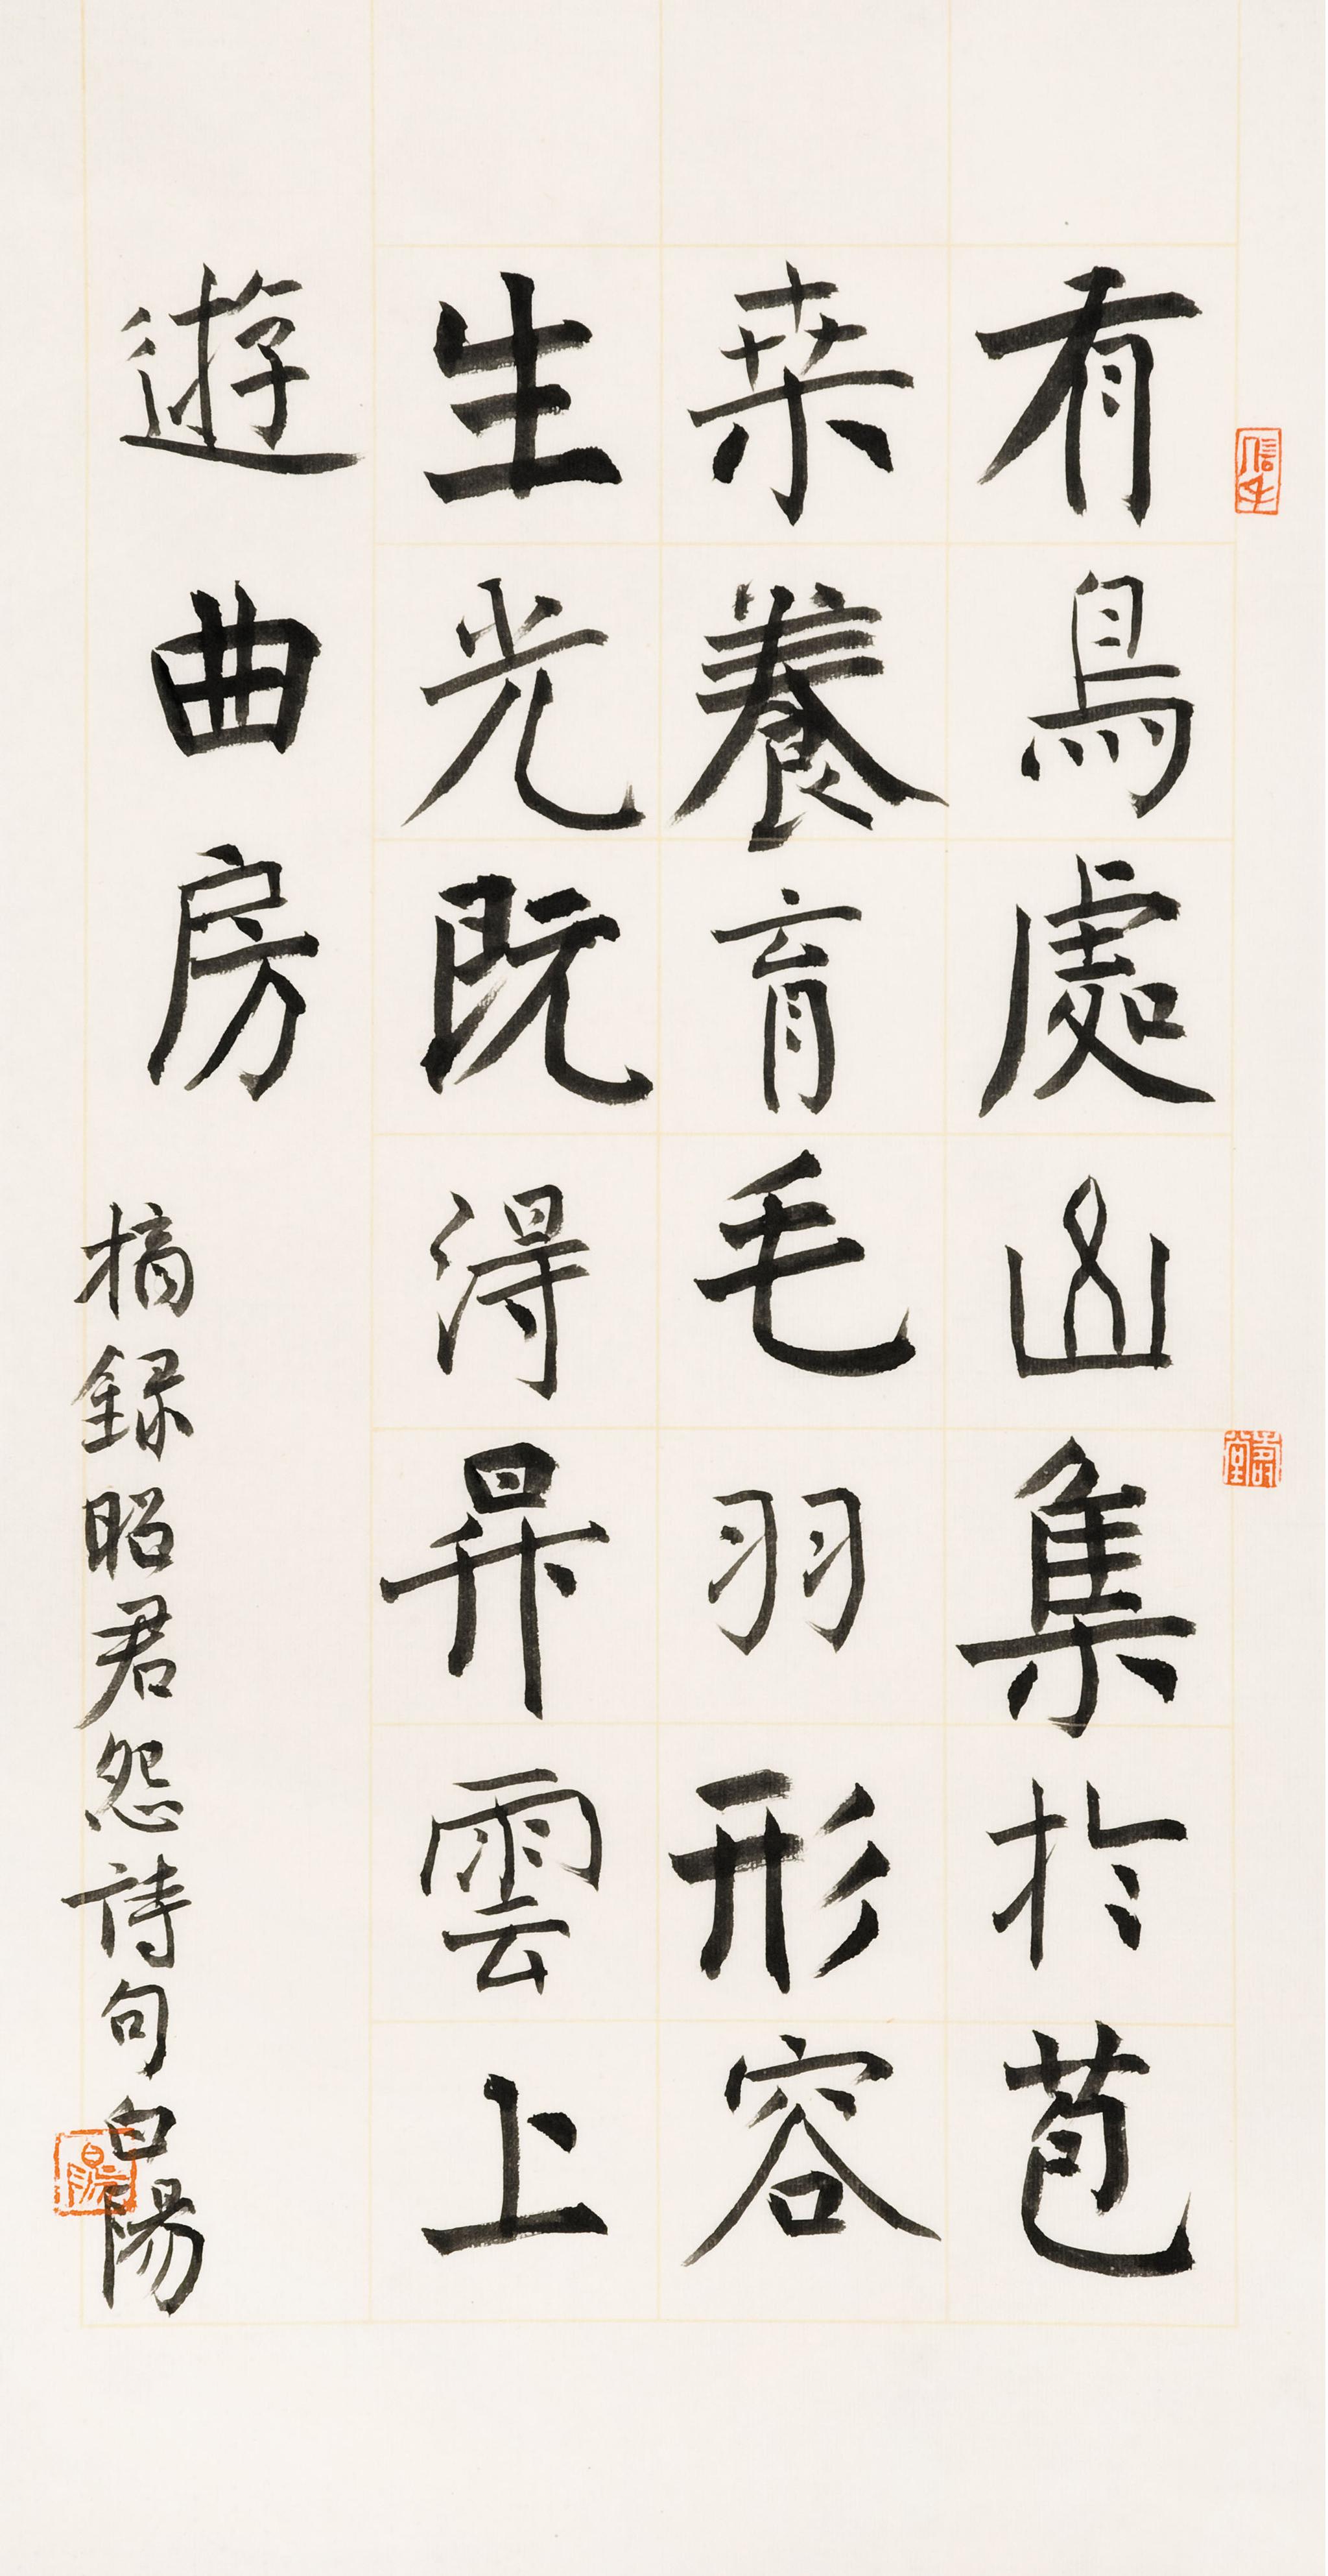 有鳥處山集於苞
桒養育毛羽形容
生光既得昇雲上
遊曲房
摘録昭君怨詩句白陽
信手
壽堂